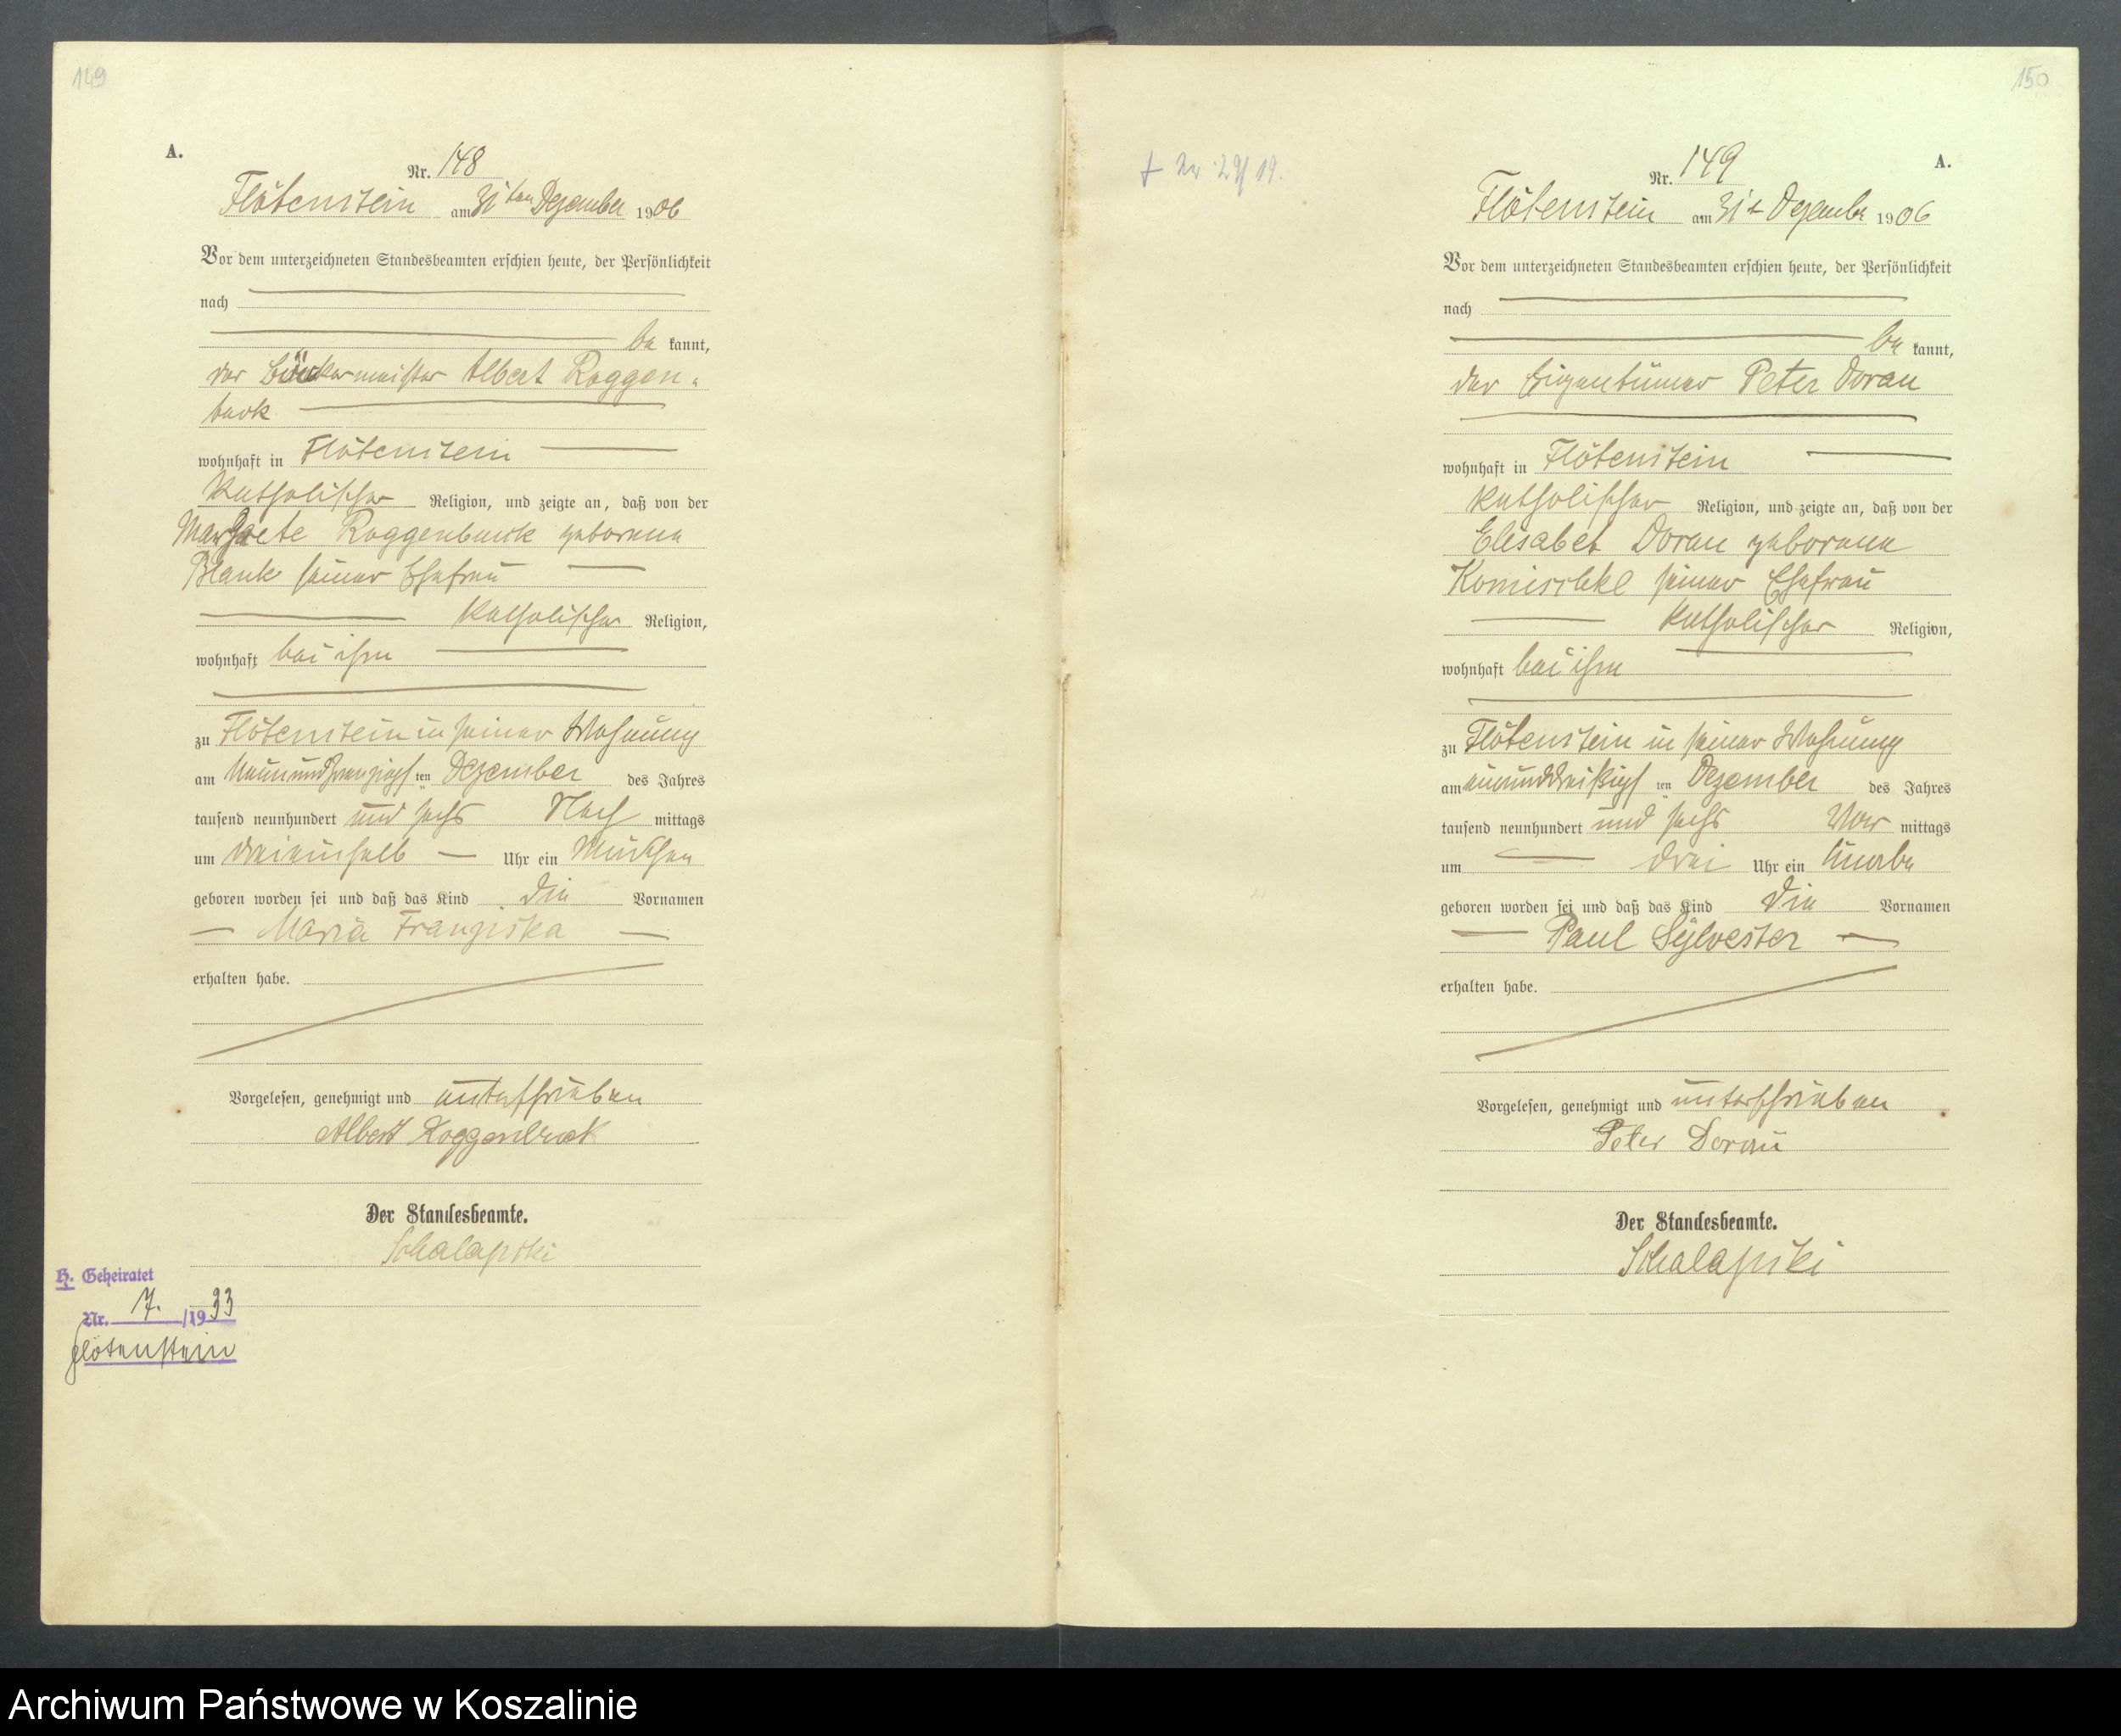 149
A.
Nr. 148
Flötenstein am 31ten Dezember 1906
Vor dem unterzeichneten Standesbeamten erschien heute, der Persönlichkeit
nach
be kannt,
der Bäckermeister Albert Roggen-
buck
wohnhaft in Flötenstein
katholischer Religion, und zeigte an, daß von der
Margarete Roggenbuck geborene
Blank seiner Ehefrau
katholischer Religion,
wohnhaft bei ihm
zu Flötenstein in seiner Wohnung
am neunundzwanzigsten Dezember des Jahres
tausend neunhundert und sechs Nach mittags
um dreieinhalb Uhr ein Mädchen
geboren worden sei und daß das Kind die Vornamen
Maria Franziska
erhalten habe.
Vorgelesen, genehmigt und unterschrieben
Albert Roggenbuck
Der Standesbeamte.
Schalapski
H. Geheiratet
Nr. 7. /1933
Flötenstein
150
A.
† Nr. 29/19.
Nr. 149
Flötenstein am 31t Dezember 1906
Vor dem unterzeichneten Standesbeamten erschien heute, der Persönlichkeit
nach
be kannt,
der Eigentümer Peter Dorau
wohnhaft in Flötenstein
katholischer Religion, und zeigte an, daß von der
Elisabet Dorau geborene
Komischke seiner Ehefrau
katholischer Religion,
wohnhaft bei ihm
zu Flötenstein in seiner Wohnung
am einunddreißigsten Dezember des Jahres
tausend neunhundert und sechs Vor mittags
um drei Uhr ein Knabe
geboren worden sei und daß das Kind die Vornamen
Paul Sylvester
erhalten habe.
Vorgelesen, genehmigt und unterschrieben
Peter Dorau
Der Standesbeamte.
Schalapski
Archiwum Państwowe w Koszalinie